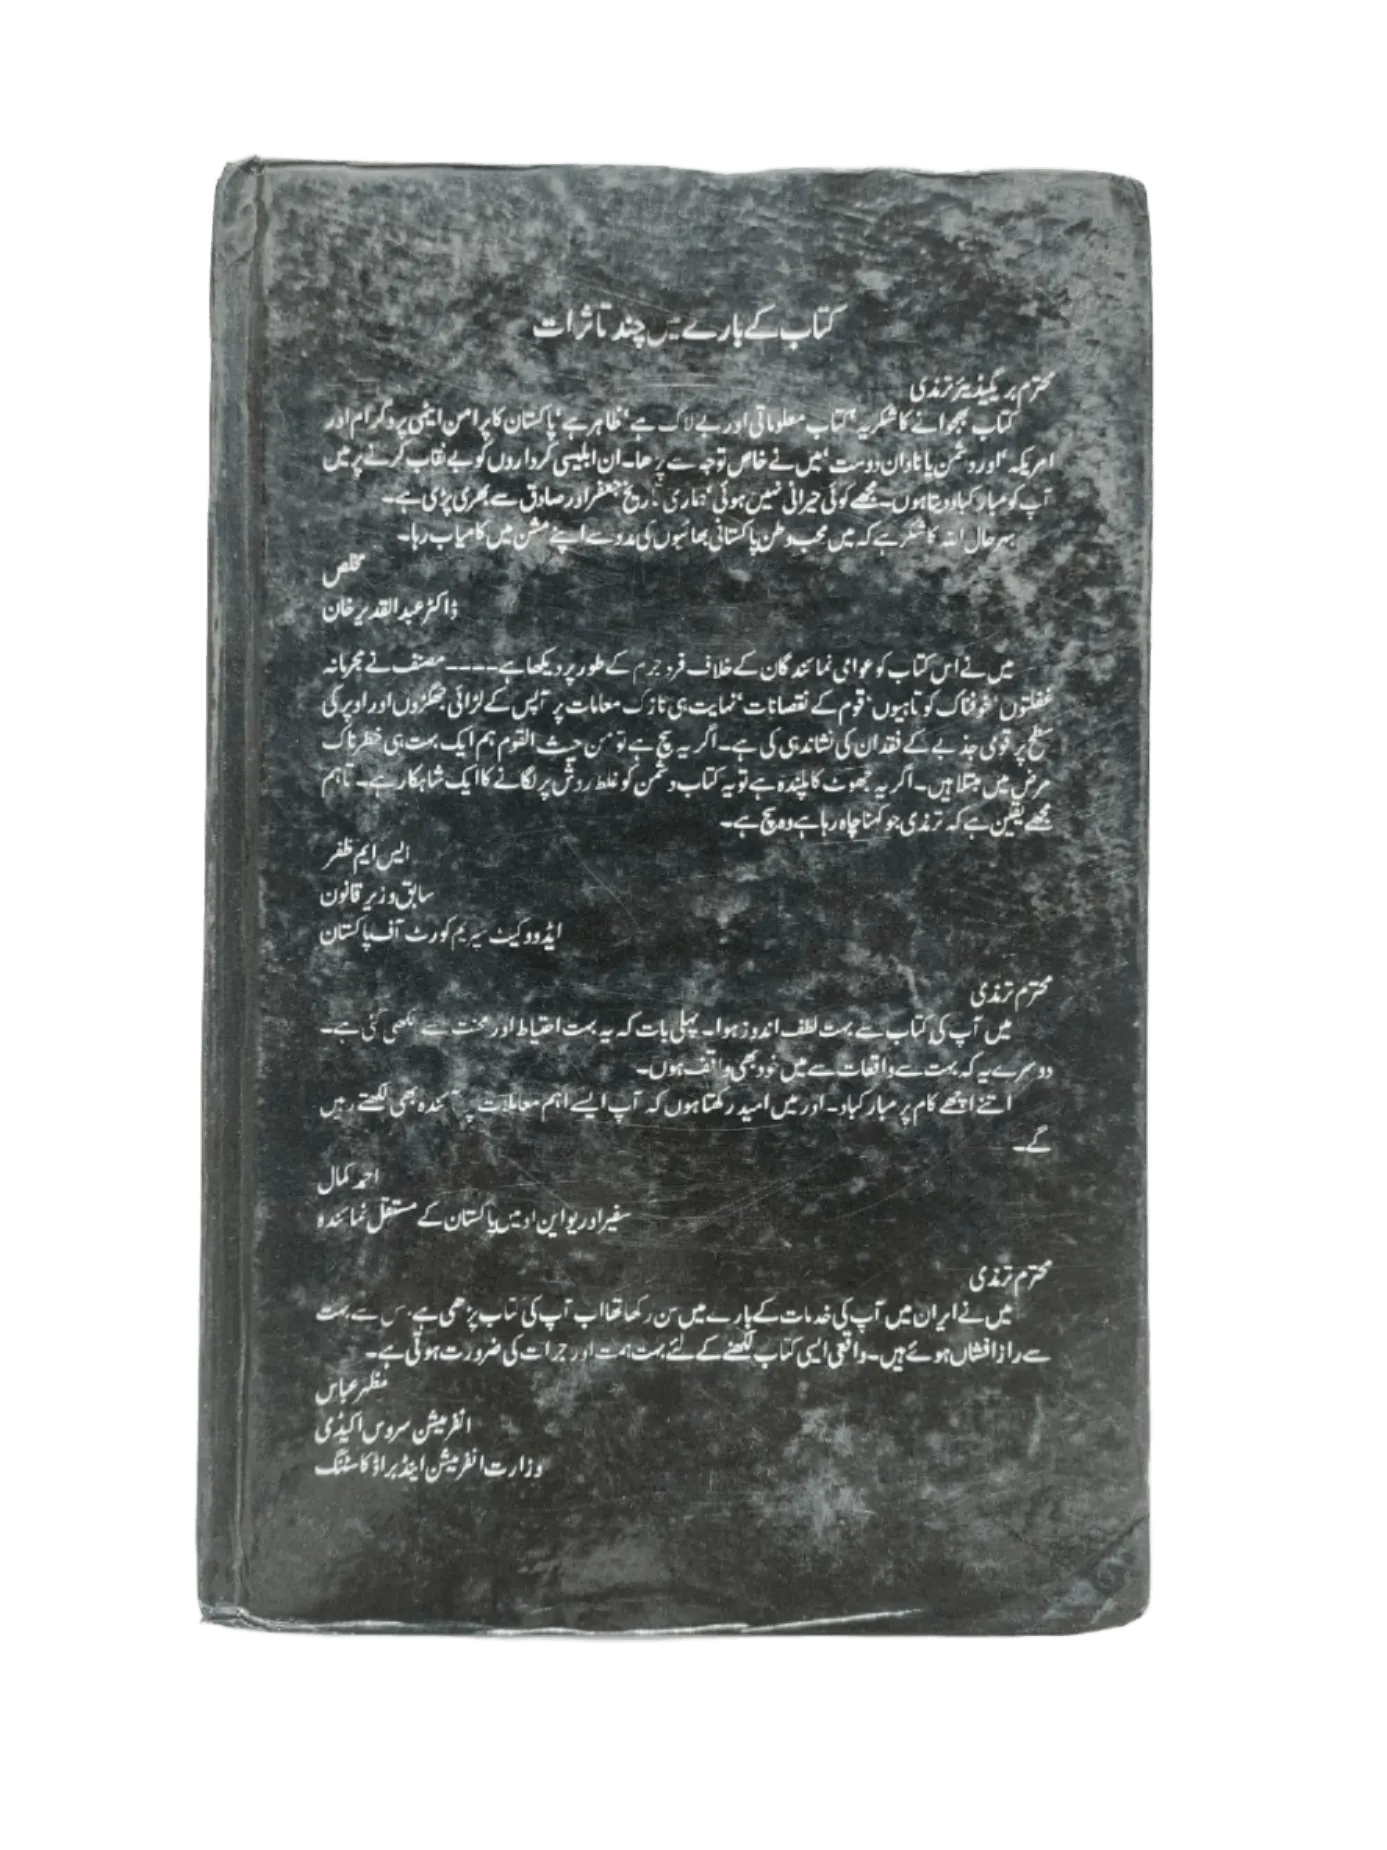 کتاب کے بارے میں چند تاثرات
محترم بریگیڈیئر ترمذی
کتاب بھجوانے کا شکریہ‘ کتاب معلوماتی اور بے لاگ ہے‘ ظاہر ہے‘ پاکستان کا پرامن ایٹمی پروگرام اور
امریکہ‘ اور دشمن یا نادان دوست‘ میں نے خاص توجہ سے پڑھا۔ ان ابلیسی کرداروں کو بے نقاب کرنے پر میں
آپ کو مبارکباد دیتا ہوں۔ مجھے کوئی حیرانی نہیں ہوئی‘ ہماری تاریخ جعفر اور صادق سے بھری پڑی ہے۔
بہرحال اللہ کا شکر ہے کہ میں محب وطن پاکستانی بھائیوں کی مدد سے اپنے مشن میں کامیاب رہا۔
مخلص
ڈاکٹر عبدالقدیر خان
میں نے اس کتاب کو عوامی نمائندگان کے خلاف فرد جرم کے طور پر دیکھا ہے۔۔۔۔ مصنف نے مجرمانہ
غفلتوں‘ خوفناک کوتاہیوں‘ قوم کے نقصانات‘ نہایت ہی نازک معاملات پر آپس کے لڑائی جھگڑوں اور اوپر کی
سطح پر قومی جذبے کے فقدان کی نشاندہی کی ہے۔ اگر یہ سچ ہے تو من حیث القوم ہم ایک بہت ہی خطرناک
مرض میں مبتلا ہیں۔ اگر یہ جھوٹ کا پلندہ ہے تو یہ کتاب دشمن کو غلط روش پر لگانے کا ایک شاہکار ہے۔ تاہم
مجھے یقین ہے کہ ترمذی جو کہنا چاہ رہا ہے وہ سچ ہے۔
ایس ایم ظفر
سابق وزیر قانون
ایڈووکیٹ سپریم کورٹ آف پاکستان
محترم ترمذی
میں آپ کی کتاب سے بہت لطف اندوز ہوا۔ پہلی بات کہ یہ بہت احتیاط اور محنت سے لکھی گئی ہے۔
دوسرے یہ کہ بہت سے واقعات سے میں خود بھی واقف ہوں۔
اتنے اچھے کام پر مبارکباد۔ اور میں امید رکھتا ہوں کہ آپ ایسے اہم معاملات پر آئندہ بھی لکھتے رہیں
گے۔
احمد کمال
سفیر اور یو این او میں پاکستان کے مستقل نمائندہ
محترم ترمذی
میں نے ایران میں آپ کی خدمات کے بارے میں سن رکھا تھا اب آپ کی کتاب پڑھی ہے جس سے بہت
سے راز افشاں ہوئے ہیں۔ واقعی ایسی کتاب لکھنے کے لئے بہت ہمت اور جرات کی ضرورت ہوتی ہے۔
مظہر عباس
انفرمیشن سروس اکیڈمی
وزارت انفرمیشن اینڈ براڈ کاسٹنگ